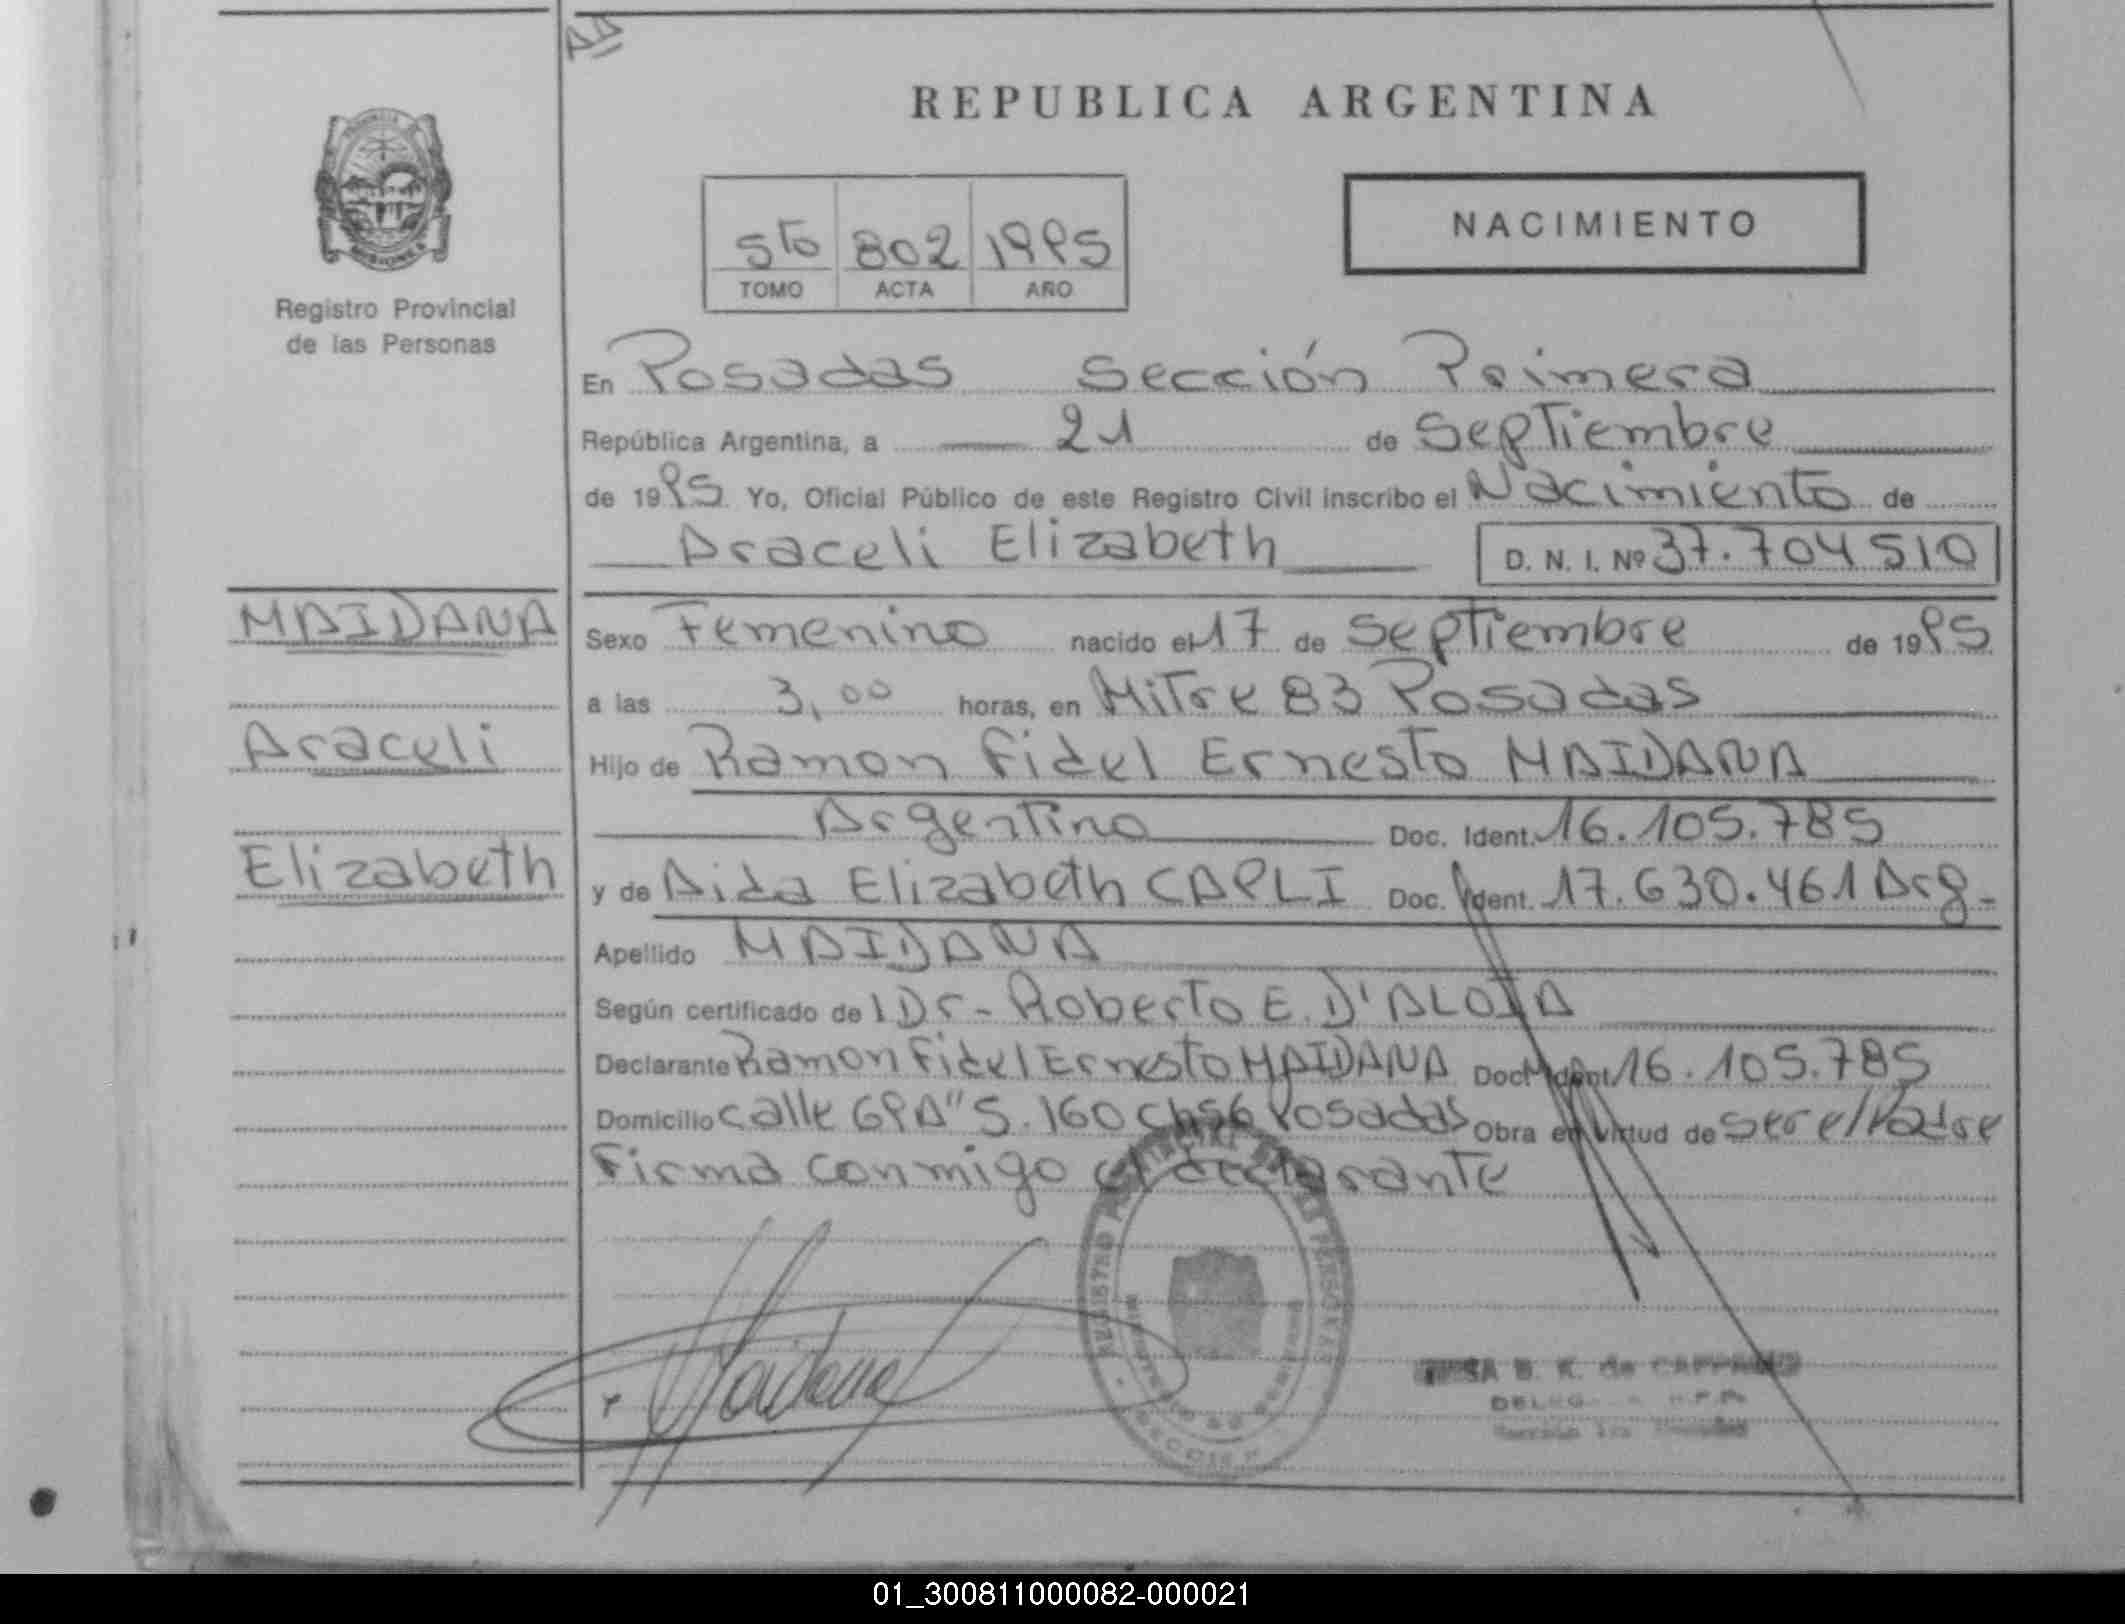 REPUBLICA ARGENTINA
MISIONES
Registro Provincial
de las Personas
5to 802 1995
TOMO ACTA AÑO
NACIMIENTO
En Posadas Sección Primera
República Argentina, a 21 de Septiembre
de 1995 Yo, Oficial Público de este Registro Civil inscribo el Nacimiento de
Araceli Elizabeth D. N. I. Nº 37.704510
MAIDANA
Araceli
Elizabeth
Sexo Femenino nacido el 17 de Septiembre de 1995
a las 3,00 horas, en Mitre 83 Posadas
Hijo de Ramon Fidel Ernesto MAIDANA
Argentino Doc. Ident. 16.105.785
y de Aida Elizabeth Doc. Ident. 17.630.461 Arg-
Apellido MAIDANA
Según certificado de l Dr- Roberto E. D'ALOIA
Declarante Ramon Fidel Ernesto MAIDANA Doc. Ident. 16.105.785
Domicilio calle 160 Posadas Obra en virtud de ser el Padre
Firma conmigo el declarante
Maidana
B. K. de
01_300811000082-000021